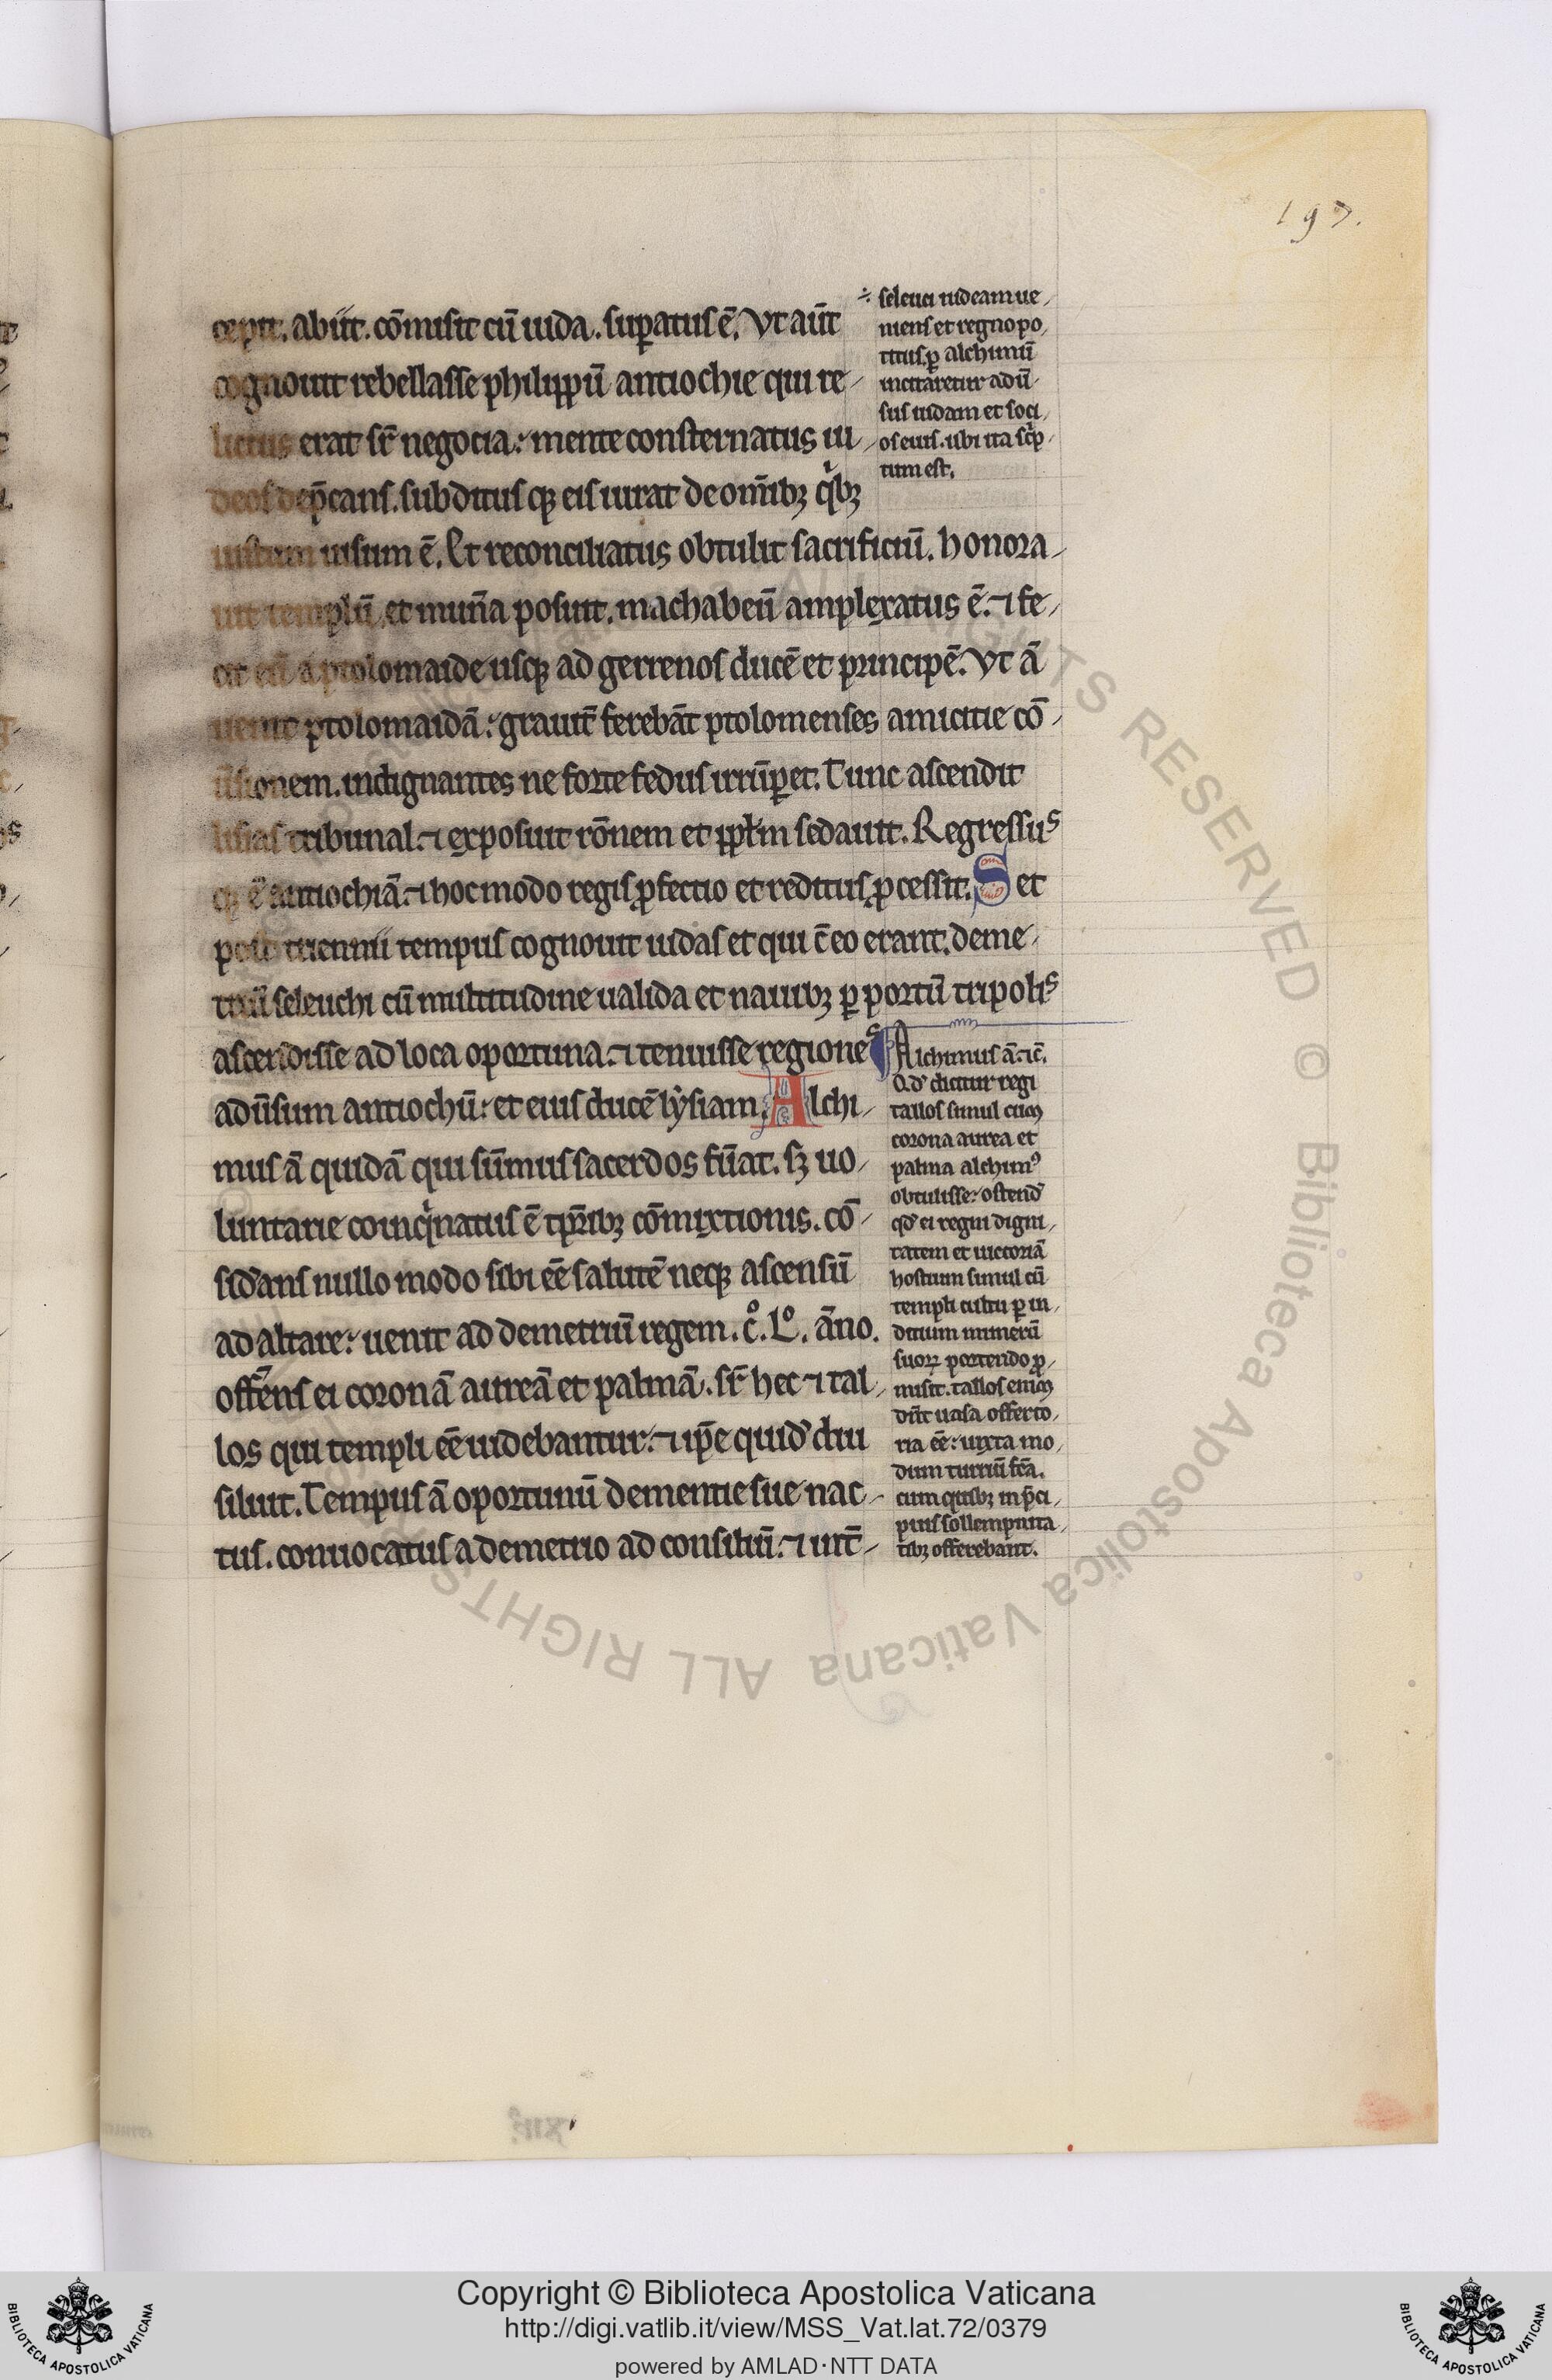 197.
cepit. abiit. cōmisit cū iuda. suꝑatus ē. Vt aūt
cognouit rebellasse philippū antiochie qui re-
lictus erat sr̄ negocia: mente consternatus iu-
deos dep̄cans. subditus qꝫ eis iurat de om̄ibꝫ qͥbꝫ
iustum uisum ē. Et reconciliatus obtulit sacrificiū. honora-
uit templū, et mun̄a posuit. machabeū amplexatus ē. ⁊ fe-
cit eū a ptolomaide usqꝫ ad gerrenos ducē et principē. Vt ā
uenit ptolomaidā: grauit̄ ferebāt ptolomenses amicitie cō-
ūsionem. indignantes ne forte fedus irrūꝑet. Tunc ascendit
lisias tribunal. ⁊ exposuit rōnem et ppl̄m sedauit. Regressus
qꝫ ē antiochiā. ⁊ hoc modo regis ꝓfectio et reditus ꝓcessit. Set
post triennii tempus cognouit iudas et qui c̄ eo erant. deme-
triū seleuchi cū multitudine ualida et nauibꝫ ꝑ portū tripolis
ascendisse ad loca oportuna. ⁊ tenuisse regiones
adūsum antiochū: et eius ducē lẏsiam. Alchi-
mus ā quidā qui sūmus sacerdos fūat. sꝫ uo-
luntarie coinqͥnatus ē tp̄ribꝫ cōmixtionis. cō-
sid̄ans nullo modo sibi eē salutē neqꝫ ascensū
ad altare: uenit ad demetriū regem. c̊. L̊. āno.
offēns ei coronā aureā et palmā. sr̄ hec ⁊ tal-
los qui templi eē uidebantur. ⁊ ip̄e quid̄ diu
siluit. Tempus ā oportunū dementie sue nac-
tus. conuocatus a demetrio ad consiliū. ⁊ int̄-
÷ seleuci iudeam ue-
niens et regno po-
titus. ꝑ alchimū
incitaretur adū-
sus iudam et soci-
os eius. ubi ita scͥp-
tum est.
Alchimus ā. ⁊ c̄.
Qd̄ dicitur regi
tallos simul cum
corona aurea et
palma alchimꝰ
obtulisse: ostend̄
qd̄ ei regni digni-
tatem et uictoriā
hostium simul cū
templi cultu ꝑ in-
ditium munerū
suoꝝ portendo ꝓ-
misit. tallos enim
dn̄t uasa offerto-
ria eē: iuxta mo-
dum turriū fc̄a.
cum quibꝫ in p̄ci-
puis sollempnita-
tibꝫ offerebant.
Copyright © Biblioteca Apostolica Vaticana
http://digi.vatlib.it/view/MSS_Vat.lat.72/0379
powered by AMLAD·NTT DATA
BIBLIOTECA APOSTOLICA VATICANA
BIBLIOTECA APOSTOLICA VATICANA